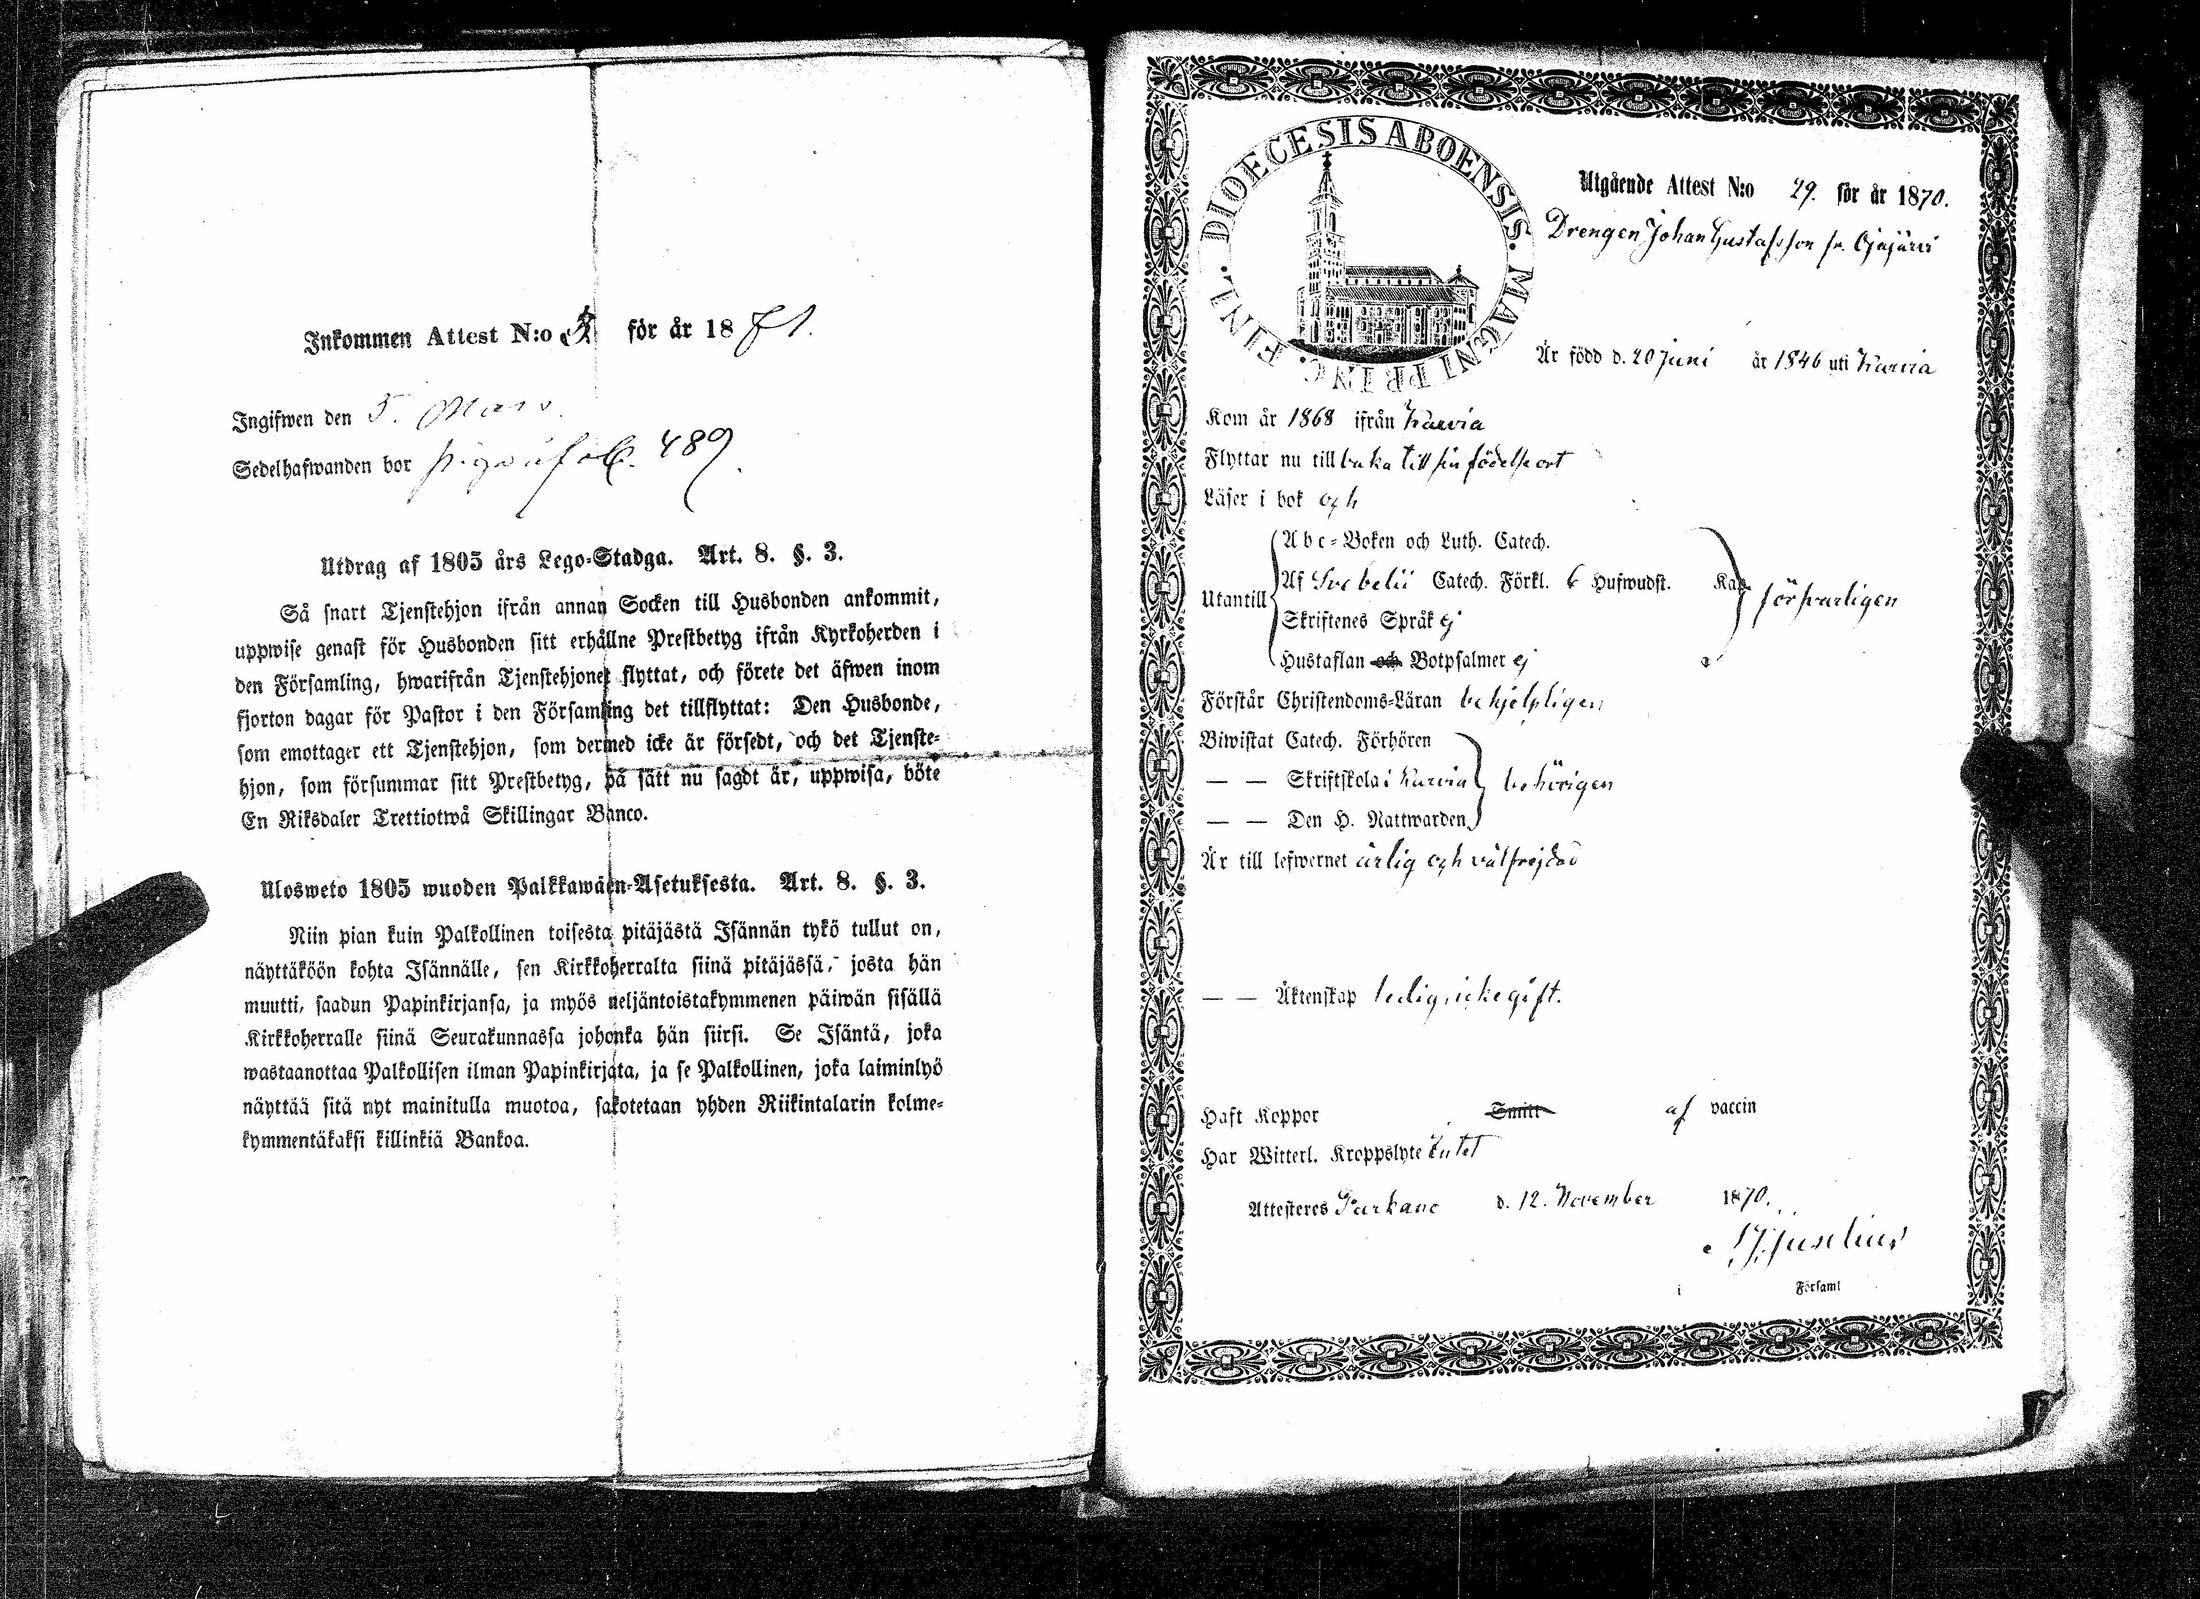 Inkommen Attest N:o för år 1871.
Ingifwen den 5. Mars.
Sedelhafwanden bor 489.
Utdrag af 1805 års Lego-Stadga. Art. 8. §. 3.
Så snart Tjenstehjon ifrån annan Socken till Husbonden ankommit,
uppwise genast för Husbonden sitt erhållne Prestbetyg ifrån Kyrkoherden i
den Församling, hwarifrån Tjenstehjonet flyttat, och förete det äfwen inom
fjorton dagar för Pastor i den Församling det tillflyttat: Den Husbonde,
som emottager ett Tjenstehjon, som dermed icke är försedt, och det Tjenste-
hjon, som försummar sitt Prestbetyg, på sätt nu sagdt är, uppwisa, böte
En Riksdaler Trettiotwå Skillingar Banco.
Ulosweto 1805 wuoden Palkkawäen-Asetuksesta. Art. 8. §. 3.
Niin pian kuin Palkollinen toisesta pitäjästä Isännän tykö tullut on,
näyttäköön kohta Isännälle, sen Kirkkoherralta siinä pitäjässä, josta hän
muutti, saadun Papinkirjansa, ja myös neljäntoistakymmenen päiwän sisällä
Kirkkoherralle siinä Seurakunnassa johonka hän siirsi. Se Isäntä, joka
wastaanottaa Palkollisen ilman Papinkirjata, ja se Palkollinen, joka laiminlyö
näyttää sitä nyt mainitulla muotoa, sakotetaan yhden Riikintalarin kolme-
kymmentäkaksi killinkiä Bankoa.
DIOECESIS ABOENSIS. MAGNI PRINC. FINL.
Utgående Attest N:o 29. för år 1870.
Drengen Johan Gustafsson fr. Ojajärvi
Är född d. 20 Juni år 1846 uti Karvia
Kom år 1868 ifrån Karvia
Flyttar nu till baka till sin födelseort
Läser i bok och
Utantill
Abc-Boken och Luth. Catech.
Af Svebelii Catech. Förkl. 6 Hufwudst. Kap.
Skriftenes Språk ej
Hustaflan och Botpsalmer ej
försvarligen
Förstår Christendoms-Läran behjelpligen
Biwistat Catech. Förhören
— — Skriftskola i Karvia behörigen
— — Den H. Nattwarden
Är till lefwernet ärlig och välfrejdad
— — Äktenskap ledig, icke gift.
Haft Koppor Smitt af vaccin
Har Witterl. Kroppslyte Intet
Attesteres Parkano d. 12. November 1870.
Juselius
i Församl